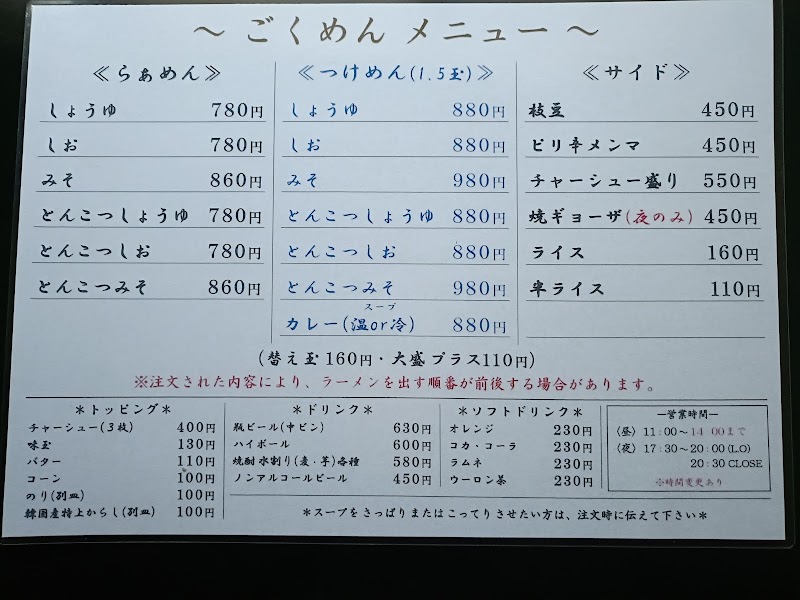 ～ ごくめん メニュー ～
≪らぁめん≫
しょうゆ 780円
しお 780円
みそ 860円
とんこつしょうゆ 780円
とんこつしお 780円
とんこつみそ 860円
≪つけめん(1.5玉)≫
しょうゆ 880円
しお 880円
みそ 980円
とんこつしょうゆ 880円
とんこつしお 880円
とんこつみそ 980円
スープ
カレー(温or冷) 880円
≪サイド≫
枝豆 450円
ピリ辛メンマ 450円
チャーシュー盛り 550円
焼ギョーザ(夜のみ) 450円
ライス 160円
半ライス 110円
(替え玉160円・大盛プラス110円)
※注文された内容により、ラーメンを出す順番が前後する場合があります。
＊トッピング＊
チャーシュー(3枚) 400円
味玉 130円
バター 110円
コーン 100円
のり(別皿) 100円
韓国産特上からし(別皿) 100円
＊ドリンク＊
瓶ビール(中ビン) 630円
ハイボール 600円
焼酎水割り(麦・芋)各種 580円
ノンアルコールビール 450円
＊ソフトドリンク＊
オレンジ 230円
コカ・コーラ 230円
ラムネ 230円
ウーロン茶 230円
―営業時間―
〈昼〉11:00～14:00まで
〈夜〉17:30～20:00(L.O)
20:30 CLOSE
※時間変更あり
＊スープをさっぱりまたはこってりさせたい方は、注文時に伝えて下さい＊